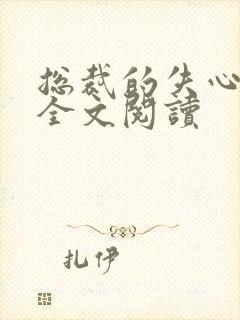 总裁的失心
全文閱讀
扎伊